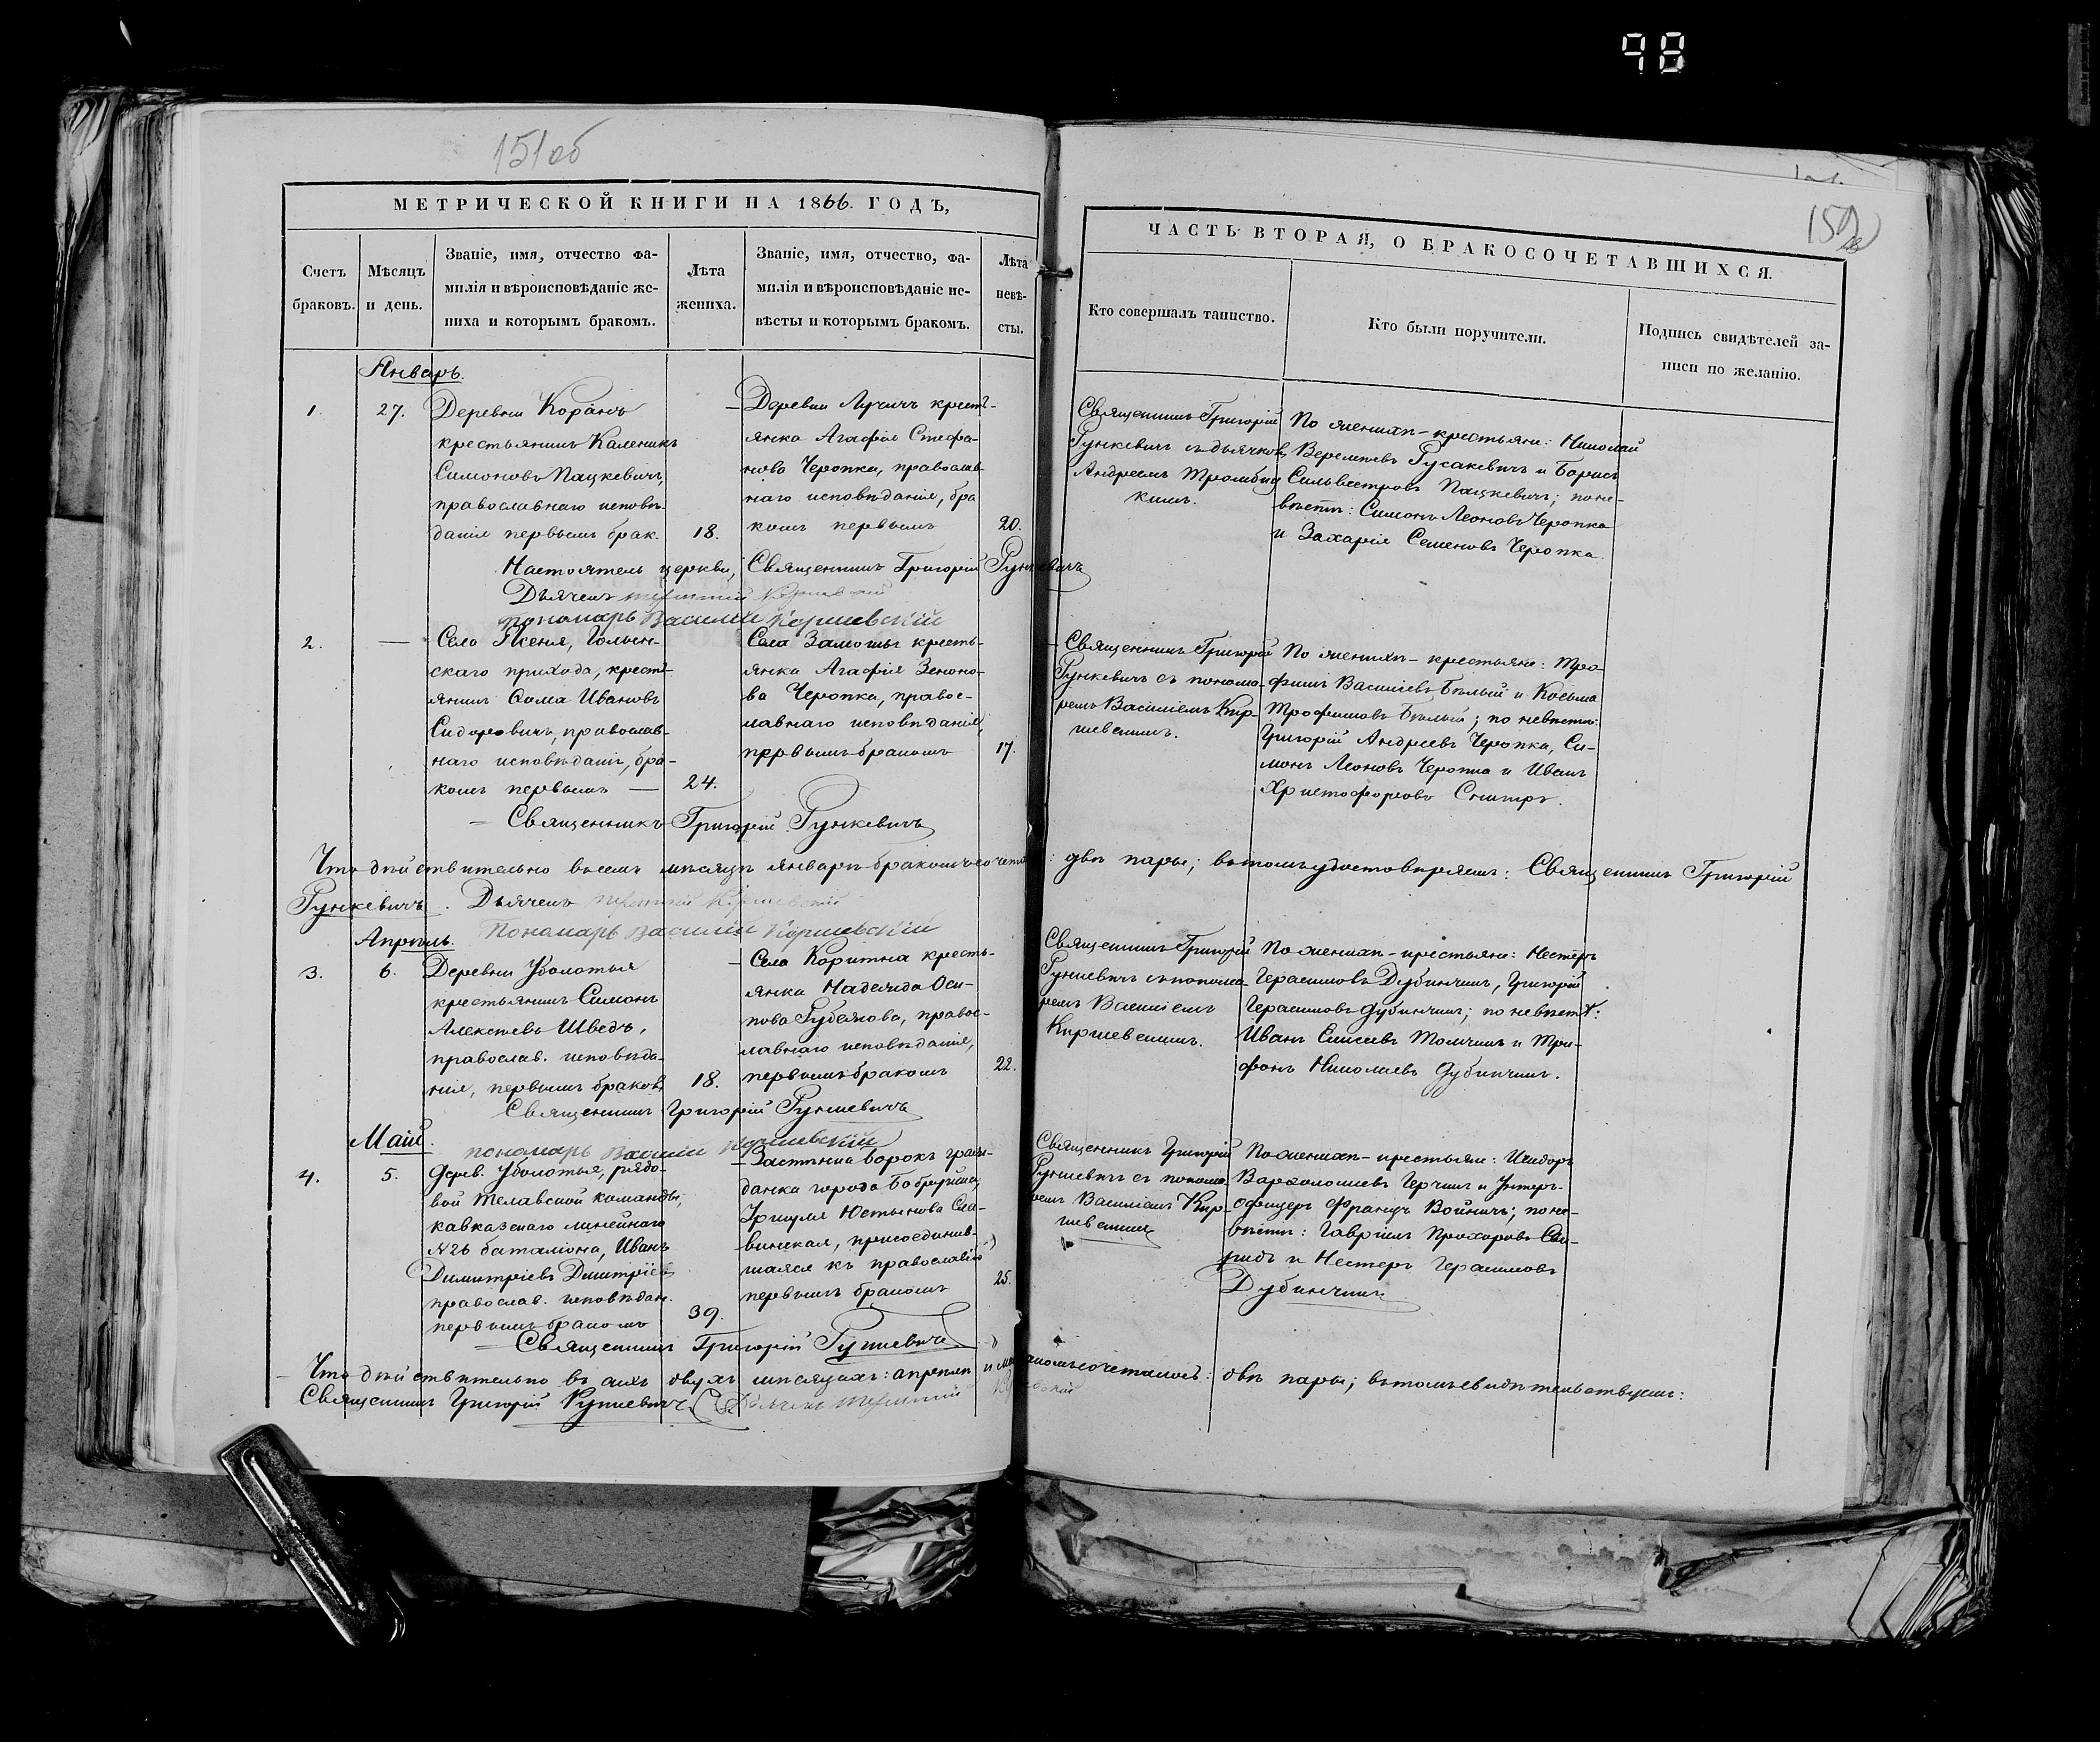 98
151об
152
МЕТРИЧЕСКОЙ КНИГИ НА 1866. ГОДЪ,
Счетъ браковъ.
Мѣсяцъ и день.
Званіе, имя, отчество фа-
милія и вѣроисповѣданіе же-
ниха и которымъ бракомъ.
Лѣта жениха.
Званіе, имя, отчество, фа-
милія и вѣроисповѣданіе не-
вѣсты и которымъ бракомъ.
Лѣта
невѣ-
сты.
ЧАСТЬ ВТОРАЯ, О БРАКОСОЧЕТАВШИХСЯ.
Кто совершалъ таинство.
Кто были поручители.
Подпись свидѣтелей за-
писи по желанію.
Январь.
1.
27.
Деревни Коранъ
крестьянинъ Каленикъ
Симоновъ Пацкевичъ,
православнаго исповѣ-
данія первымъ брак.
18.
Деревни Лучичъ кресть-
янка Агафія Стефа-
нова Черопка, православ-
наго исповѣданія, бра
комъ первымъ
20.
Священникъ Григорій
Рункевичъ съ дьячком
Андреемъ Тромбиц
кимъ.
По женихѣ - крестьяне: Николай
Веремѣевъ Русакевичъ и Борисъ
Сильвестровъ Пацкевичъ; по не-
вѣстѣ: Симонъ Леоновъ Черопка
и Захарія Семеновъ Черопка
Настоятель церкви, Священникъ Григорій Рункевичъ
Дьячекъ
Пономарь Василій Киршевскій
2.
—
Села Ясеня, Гольын-
скаго прихода, кресть-
янинъ Ѳома Ивановъ
Сидоровичъ, православ-
наго исповѣданія, бра-
комъ первымъ —
24.
Села Замошья кресть-
янка Агафія Зеноно-
ва Черопка, правос-
лавнаго исповѣданія,
первымъ бракомъ
17.
Священникъ Григорій
Рункевичъ съ понома-
ремъ Василіемъ Кир-
шевскимъ.
По женихѣ - крестьяне: Тро-
фимъ Василіевъ Бѣлый и Косьма
Трофимовъ Бѣлый; по невѣстѣ:
Григорій Андреевъ Черопка, Си-
монъ Леоновъ Черопка и Иванъ
Христофоровъ
Священникъ Григорій Рункевичъ
Что дѣйствительно въ семъ мѣсяцѣ январѣ бракомъ сочета : двѣ пары; въ томъ удостовѣряемъ: Священникъ Григорій
Рункевичъ. Дьячекъ
Пономарь Василій Киршевскій
Апрѣль.
3.
6.
Деревни Уболотья
крестьянинъ Симонъ
Алексѣевъ Шведъ,
православ. исповѣда-
нія, первымъ браком
18.
Села Коритна кресть-
янка Надежда Оси-
пова Рубанова, правос-
лавнаго исповѣданія,
первымъ бракомъ
22.
Священникъ Григорій
Рункевичъ съ понома-
ремъ Василіемъ
Киршевскимъ.
По женихѣ - крестьяне: Нестеръ
Герасимовъ Дубинчикъ, Григорій
Герасимовъ Дубинчикъ; по невѣстѣ:
Иванъ Елисеевъ Толчикъ и Три-
фонъ Николаевъ Дубинчикъ.
Священникъ Григорій Рункевичъ
Пономарь Василій Киршевскій
Май.
4.
5.
Дерев. Уболотья, рядо-
вой Телавской команды,
кавказскаго линейнаго
№26 баталіона, Иванъ
Димитріевъ Дмитріевъ
православ. исповѣдан.
первымъ бракомъ
39.
Застѣнка Ворокъ граж-
данка города Бобруйска,
Юстынова Сла-
винская, присоединив-
шаяся къ православію
первымъ бракомъ
25.
Священникъ Григорій
Рункевичъ съ понома-
ремъ Василіемъ Кир-
шевскимъ
По женихѣ - крестьяне: Исидоръ
Варѳоломеевъ Герчикъ и Унтеръ-
офицеръ Францъ Войничъ; по не-
вѣстѣ: Гавріилъ Прохоровъ Сви-
ридъ и Нестеръ Герасимовъ
Дубинчикъ
Священникъ Григорій Рункевичъ
Что дѣйствительно въ сихъ двухъ мѣсяцахъ: апрѣлѣ и ма комъ сочеталось: двѣ пары; въ томъ свидѣтельствуемъ:
Священникъ Григорій Рункевичъ. Дьячекъ